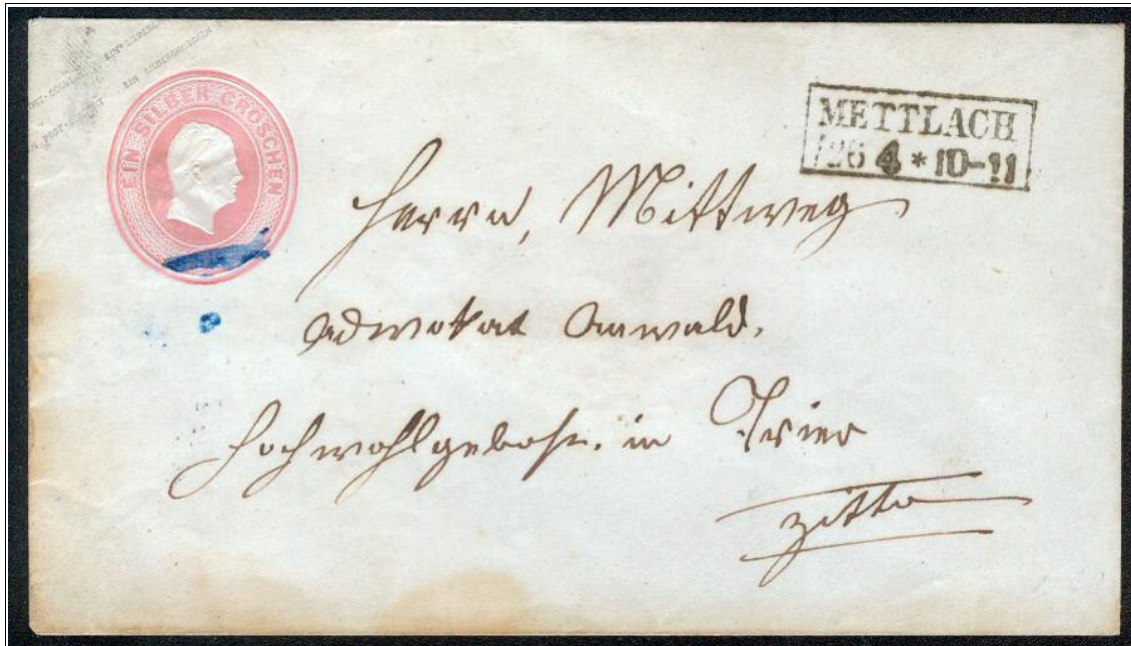 EIN SILBER GROSCHEN
METTLACH
26 4 * 10-11
Herrn, Mittweg
Advokat Anwald.
Hochwohlgebohr. in Trier
zitto